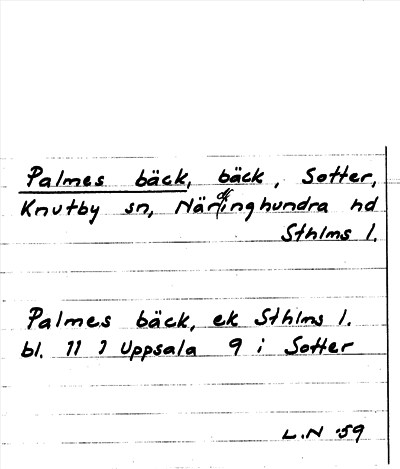 Palmes bäck, bäck, Sotter,
Knutby sn, Närdinghundra hd
Sthlms l.
Palmes bäck, ek Sthlms l.
bl. 11 7 Uppsala 9 i Sotter
L.N :59